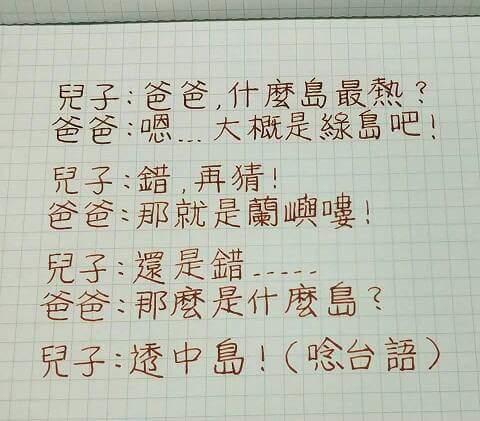 兒子:爸爸,什麼島最熱?
爸爸:嗯...大概是綠島吧!
兒子:錯,再猜!
爸爸:那就是蘭嶼嘍!
兒子:還是錯.....
爸爸:那麼是什麼島?
兒子:透中島!(唸台語)